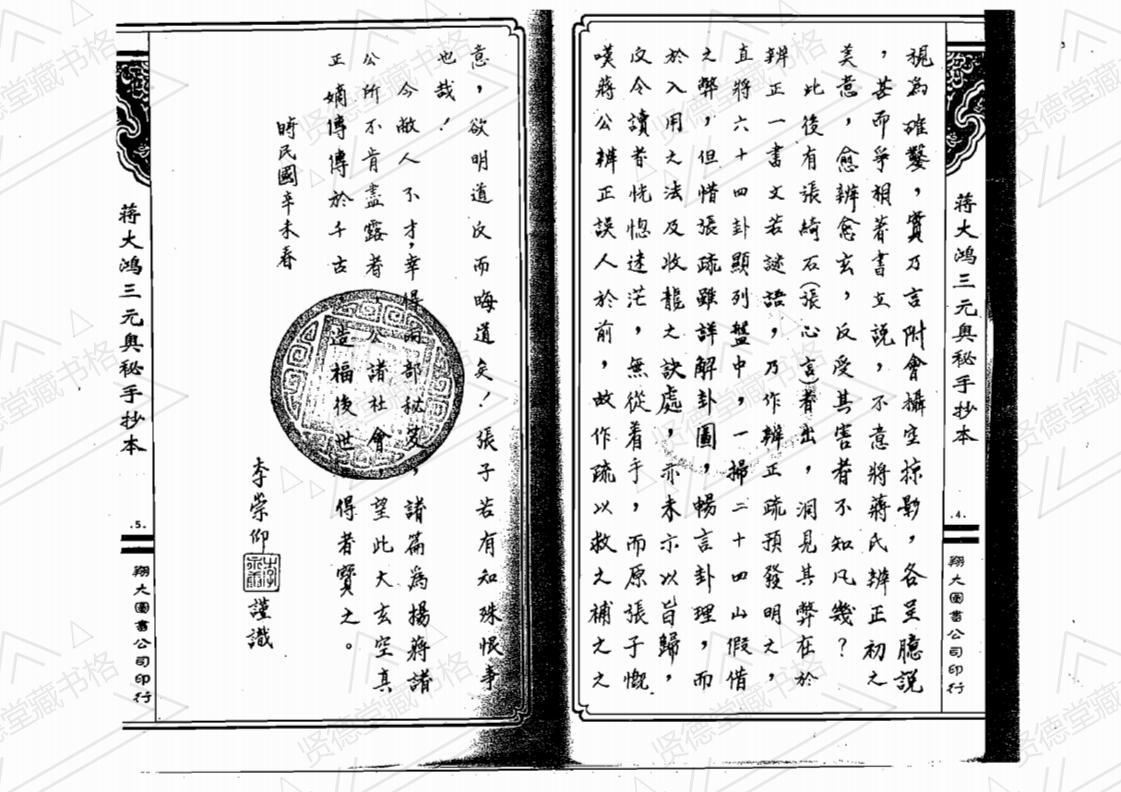 蒋大鴻三元奥秘手抄本
.4.
翔大圖書公司印行
視為確鑿，實乃言附會攝空掠影，各呈臆說
，甚而爭相著書立說，不意將蔣氏辨正初之
美意，愈辨愈玄，反受其害者不知凡幾？
此後有張綺石(張心言)者出，洞見其弊在於
辨正一書文若謎語，乃作辨正疏預發明之，
直將六十四卦顯列盤中，一掃二十四山假借
之弊，但惜張疏雖詳解卦圖，暢言卦理，而
於入用之法及收龍之訣處，亦未示以旨歸，
反令讀者恍惚迷茫，無從着手，而原張子慨
嘆蔣公辨正誤人於前，故作疏以救之補之之
意，欲明道反而晦道矣！張子若有知殊恨事
也哉！
今敝人不才，幸得兩部秘笈，諸篇為楊蔣諸
公所不肯盡露者，公諸社會，望此大玄空真
正嫡傳傳於千古，造福後世，得者寶之。
時民國辛未春
李崇仰 謹識
蒋大鴻三元奥秘手抄本
.5.
翔大圖書公司印行
贤德堂藏书格